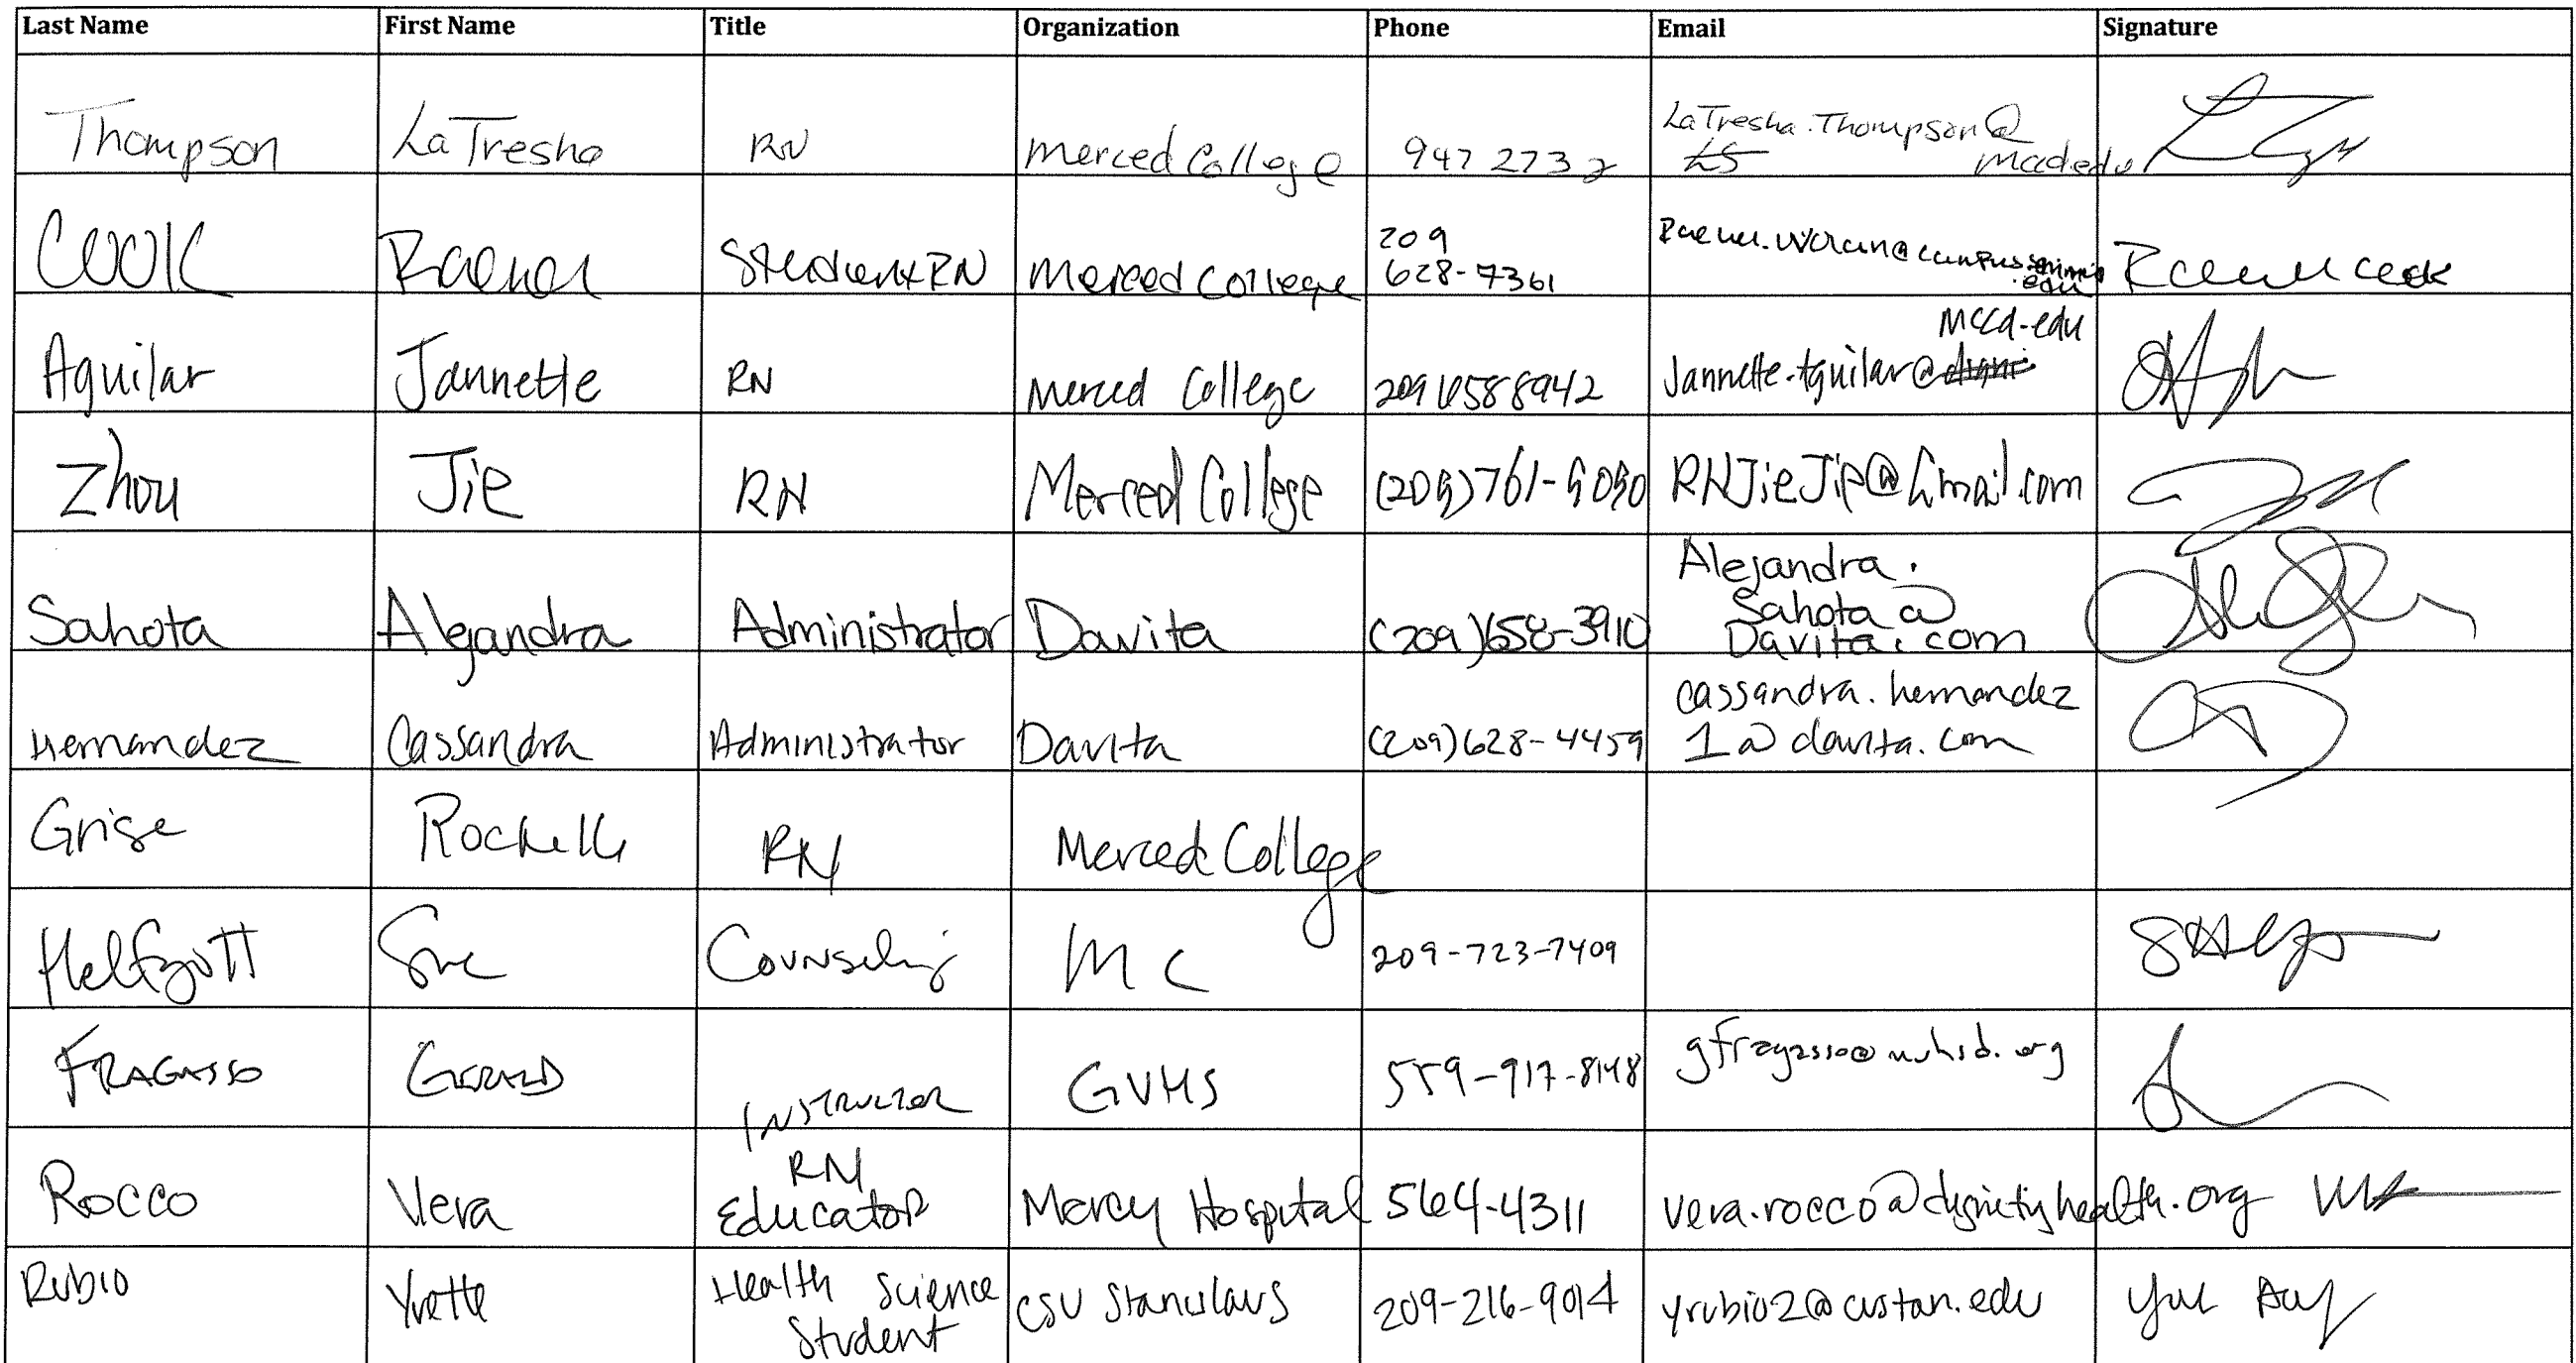 Last Name First Name Title Organization Phone Email Signature
Thompson LaTresha RN Merced College 947 2732 LaTresha.Thompson@
mccd.edu
Cook Raenel Student RN Merced College 209
628-7361
Aguilar Jannette RN Merced College 2096588942 Jannette.Aguilar@
mccd.edu
Zhou Jie RN Merced College (209)761-9090 RNJieJie@Gmail.com
Sahota Alejandra Administrator Davita (209)658-3910 Alejandra.
Sahota@
Davita.com
Hernandez Cassandra Administrator Davita (209)628-4459 cassandra.hernandez
1@davita.com
Grise Rochelle RN Merced College
Helfgott Sue Counseling MC 209-723-7409
FRAGASSO GERALD INSTRUCTOR GVHS 559-917-8148 gfragasso@muhsd.org
Rocco Vera RN
Educator Mercy Hospital 564-4311 vera.rocco@dignityhealth.org
Rubio Yvette Health Science
Student CSU Stanislaus 209-216-9014 yrubio2@csustan.edu